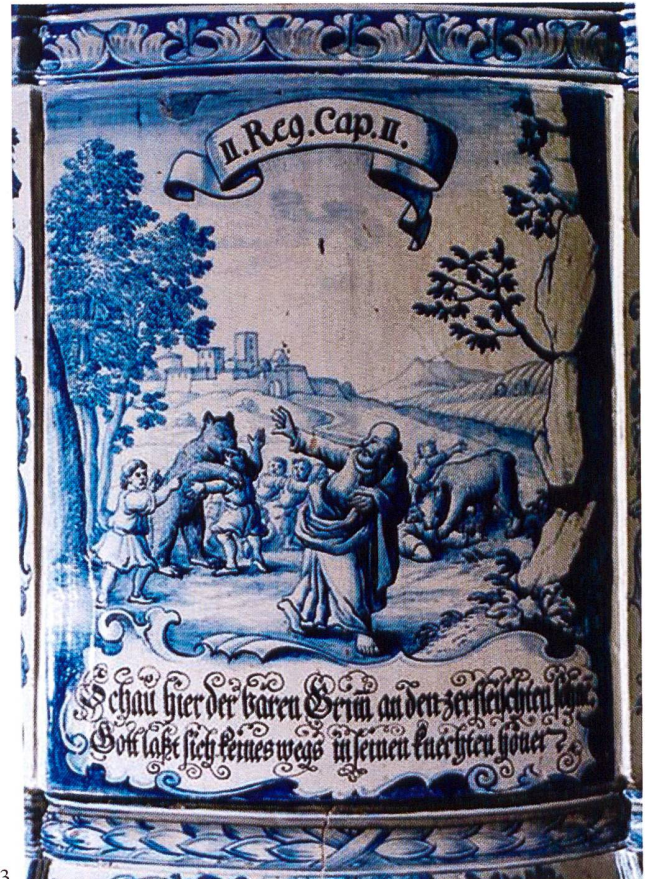 II. Reg. Cap. II.
Schau hier der bären Grim̄ an den zerfleischten
Gott laßt sich keines wegs in seinen knechten
3